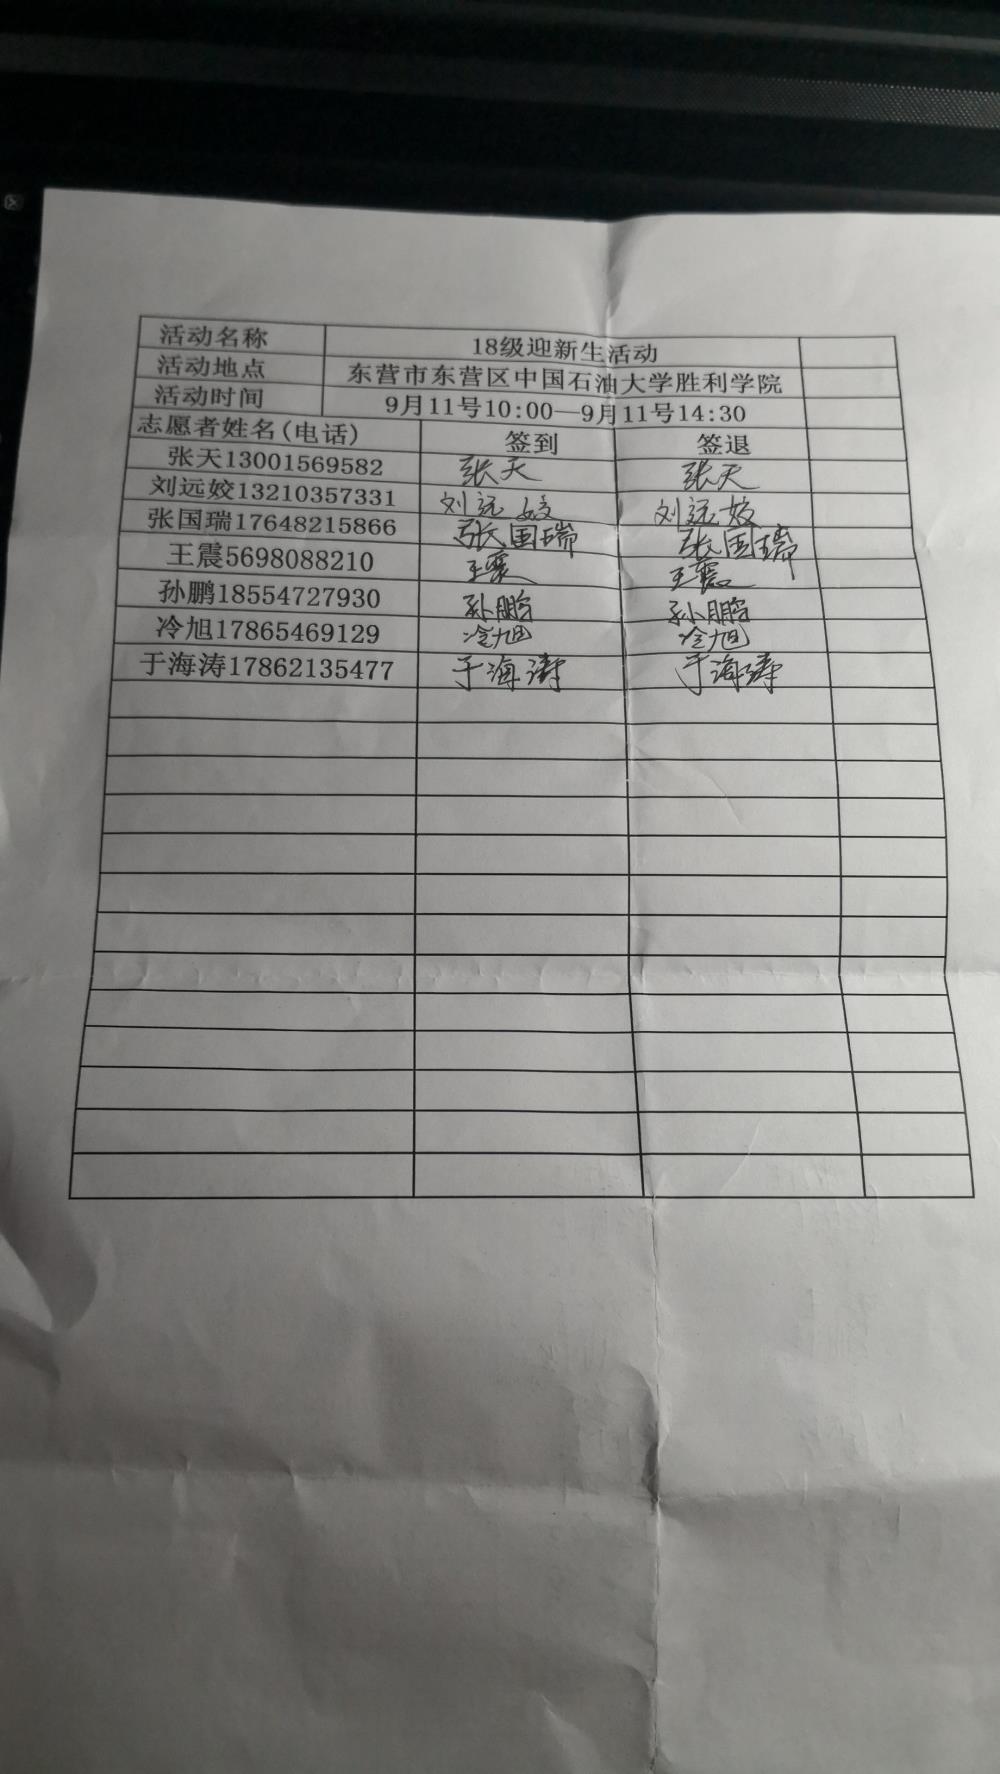 活动名称 18级迎新生活动
活动地点 东营市东营区中国石油大学胜利学院
活动时间 9月11号10:00—9月11号14:30
志愿者姓名(电话) 签到 签退
张天13001569582 张天 张天
刘远姣13210357331 刘远姣 刘远姣
张国瑞17648215866 张国瑞 张国瑞
王震5698088210 王震 王震
孙鹏18554727930 孙鹏 孙鹏
冷旭17865469129 冷旭 冷旭
于海涛17862135477 于海涛 于海涛